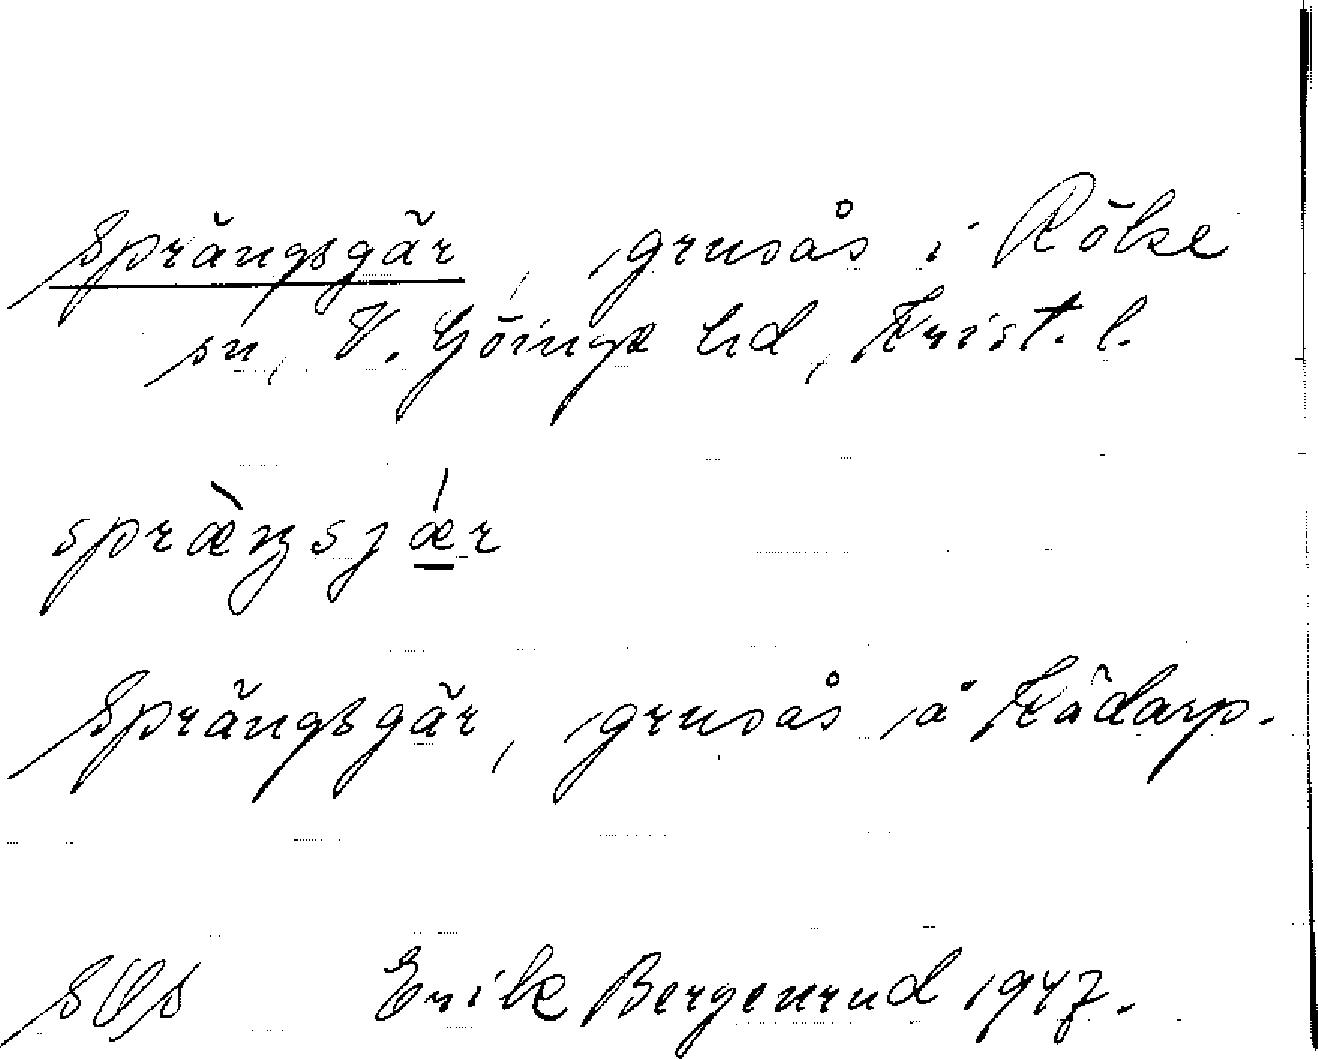 Sprängsgär, grusås i Röke
sn, V. Göinge hd, Krist. l.
spræ̀ŋsjǽ̱r
Sprängsgär, grusås å Kådarp.
Erik Bergenrud 1947.